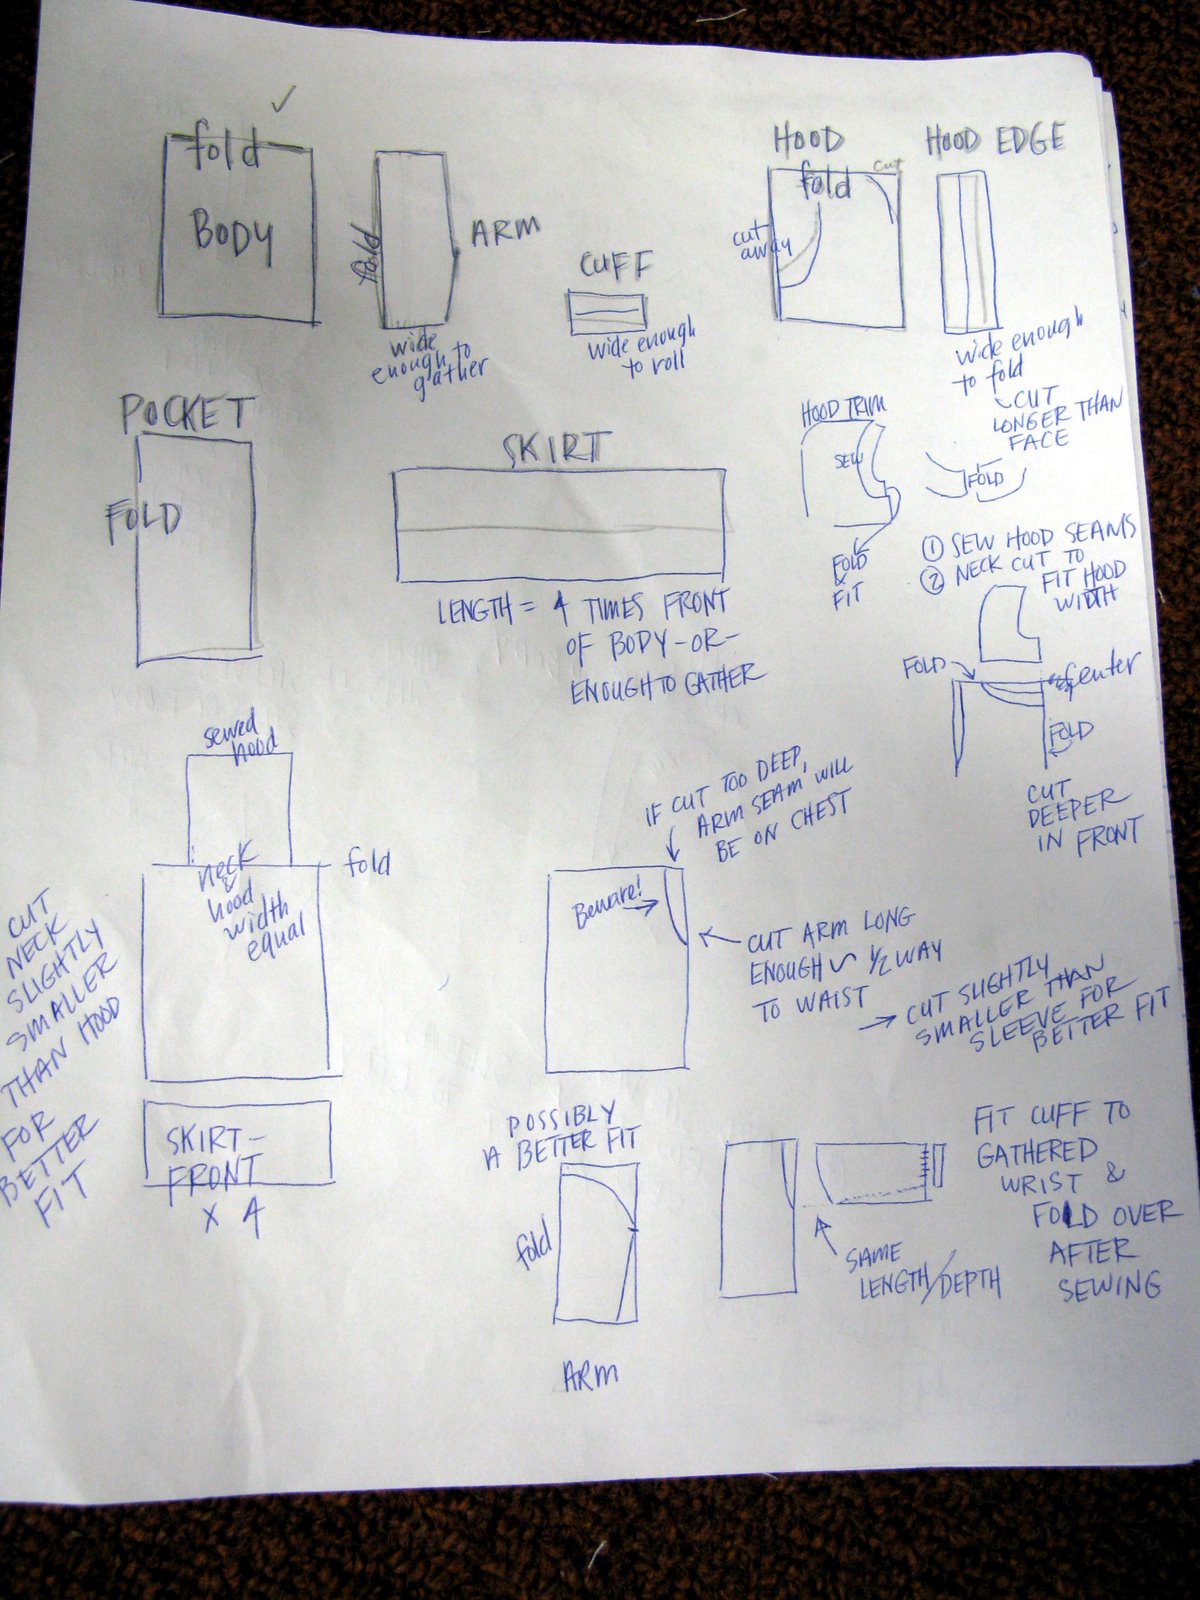 fold
BODY
fold
ARM
wide
enough to
gather
CUFF
wide enough
to roll
HOOD
cut
fold
cut
away
HOOD EDGE
wide enough
to fold
CUT
LONGER THAN
FACE
POCKET
FOLD
SKIRT
LENGTH = 4 TIMES FRONT
OF BODY-OR-
ENOUGH TO GATHER
HOOD TRIM
SEW
FOLD
&
FIT
FOLD
① SEW HOOD SEAMS
② NECK CUT TO
FIT HOOD
WIDTH
FOLD
center
FOLD
CUT
DEEPER
IN FRONT
sewed
hood
fold
neck
&
hood
width
equal
CUT
NECK
SLIGHTLY
SMALLER
THAN HOOD
FOR
BETTER
FIT
SKIRT-
FRONT
x 4
IF CUT TOO DEEP,
ARM SEAM WILL
BE ON CHEST
Beware!
CUT ARM LONG
ENOUGH ~ 1/2 WAY
TO WAIST
CUT SLIGHTLY
SMALLER THAN
SLEEVE FOR
BETTER FIT
POSSIBLY
A BETTER FIT
fold
ARM
SAME
LENGTH/DEPTH
FIT CUFF TO
GATHERED
WRIST &
FOLD OVER
AFTER
SEWING